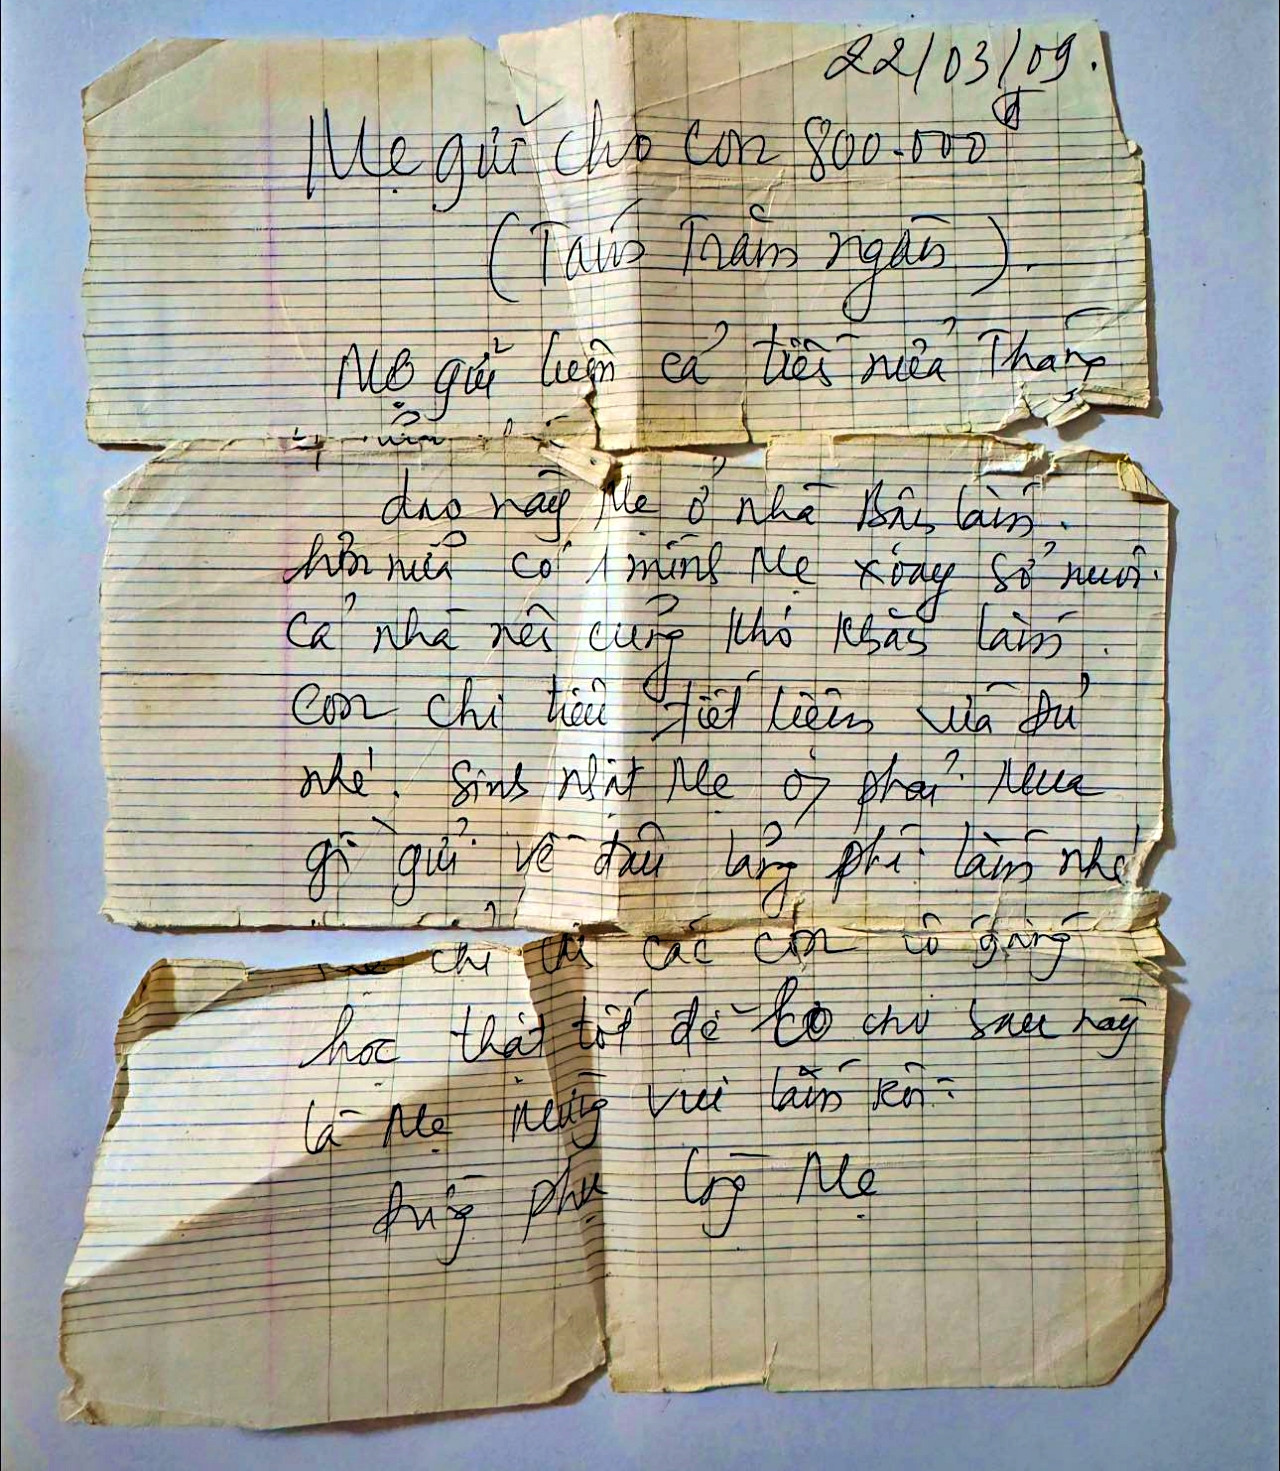 22/03/09.
Mẹ gửi cho con 800.000đ
(Tám Trăm ngàn).
Mẹ gửi luôn cả tiền nửa Tháng
4
dạo này Mẹ ở nhà Bận lắm.
hơn nữa có 1 mình Mẹ xoay sở nuôi
cả nhà nên cũng khó khăn lắm.
Con chi tiêu tiết kiệm vừa đủ
nhé. Sinh nhật Mẹ phải Mua
gì gửi về đâu lãng phí lắm nhé
Mẹ chỉ các con cố gắng
học thật tốt để cho sau này
là Mẹ Mừng vui lắm rồi.
đừng phụ lòng Mẹ